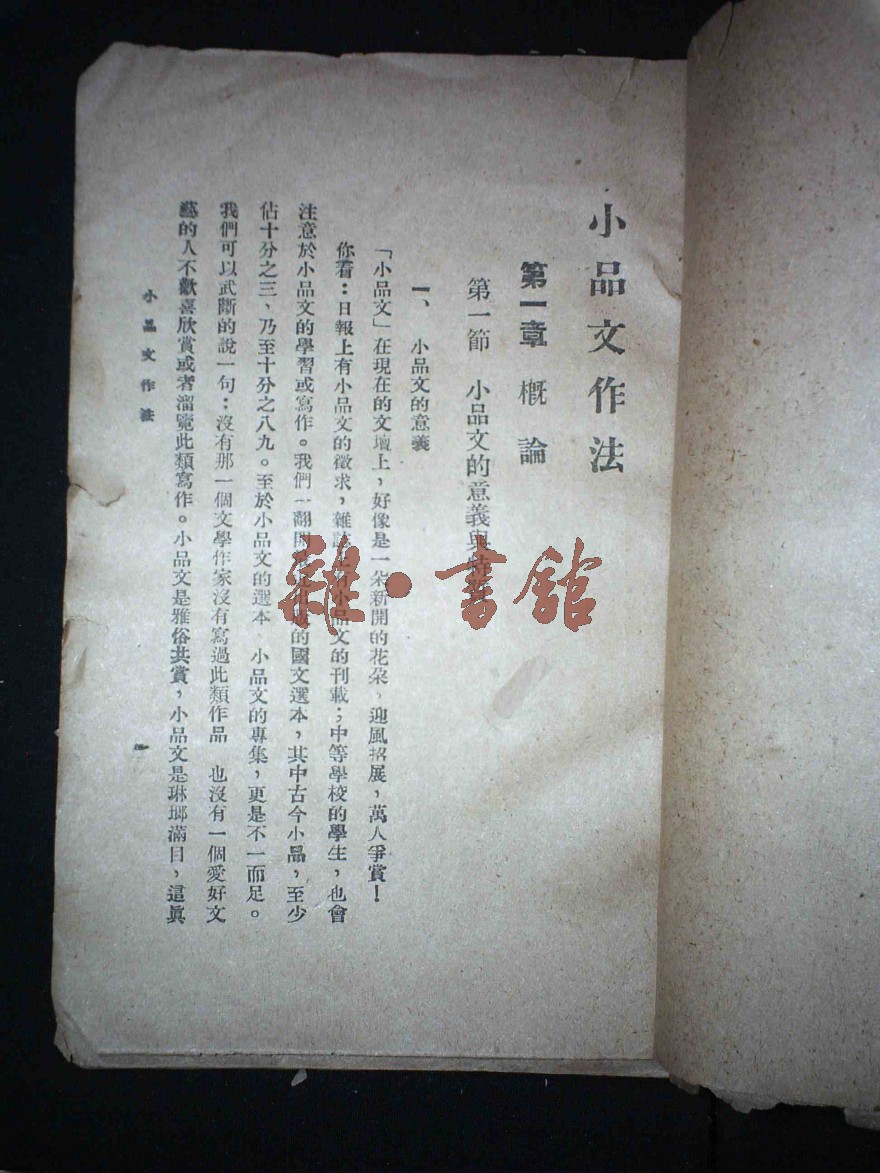 小品文作法
第一章 概論
第一節 小品文的意義與特
一、小品文的意義
「小品文」在現在的文壇上，好像是一朵新開的花朵，迎風招展，萬人爭賞！
你看：日報上有小品文的徵求，雜誌上有小品文的刊載；中等學校的學生，也會
注意於小品文的學習或寫作。我們一翻開的國文選本，其中古今小品，至少
佔十分之三，乃至十分之八九。至於小品文的選本 小品文的專集，更是不一而足。
我們可以武斷的說一句：沒有那一個文學作家沒有寫過此類作品 也沒有一個愛好文
藝的人不歡喜欣賞或者瀏覽此類寫作。小品文是雅俗共賞，小品文是琳瑯滿目，這眞
小品文作法
一
雜·書館